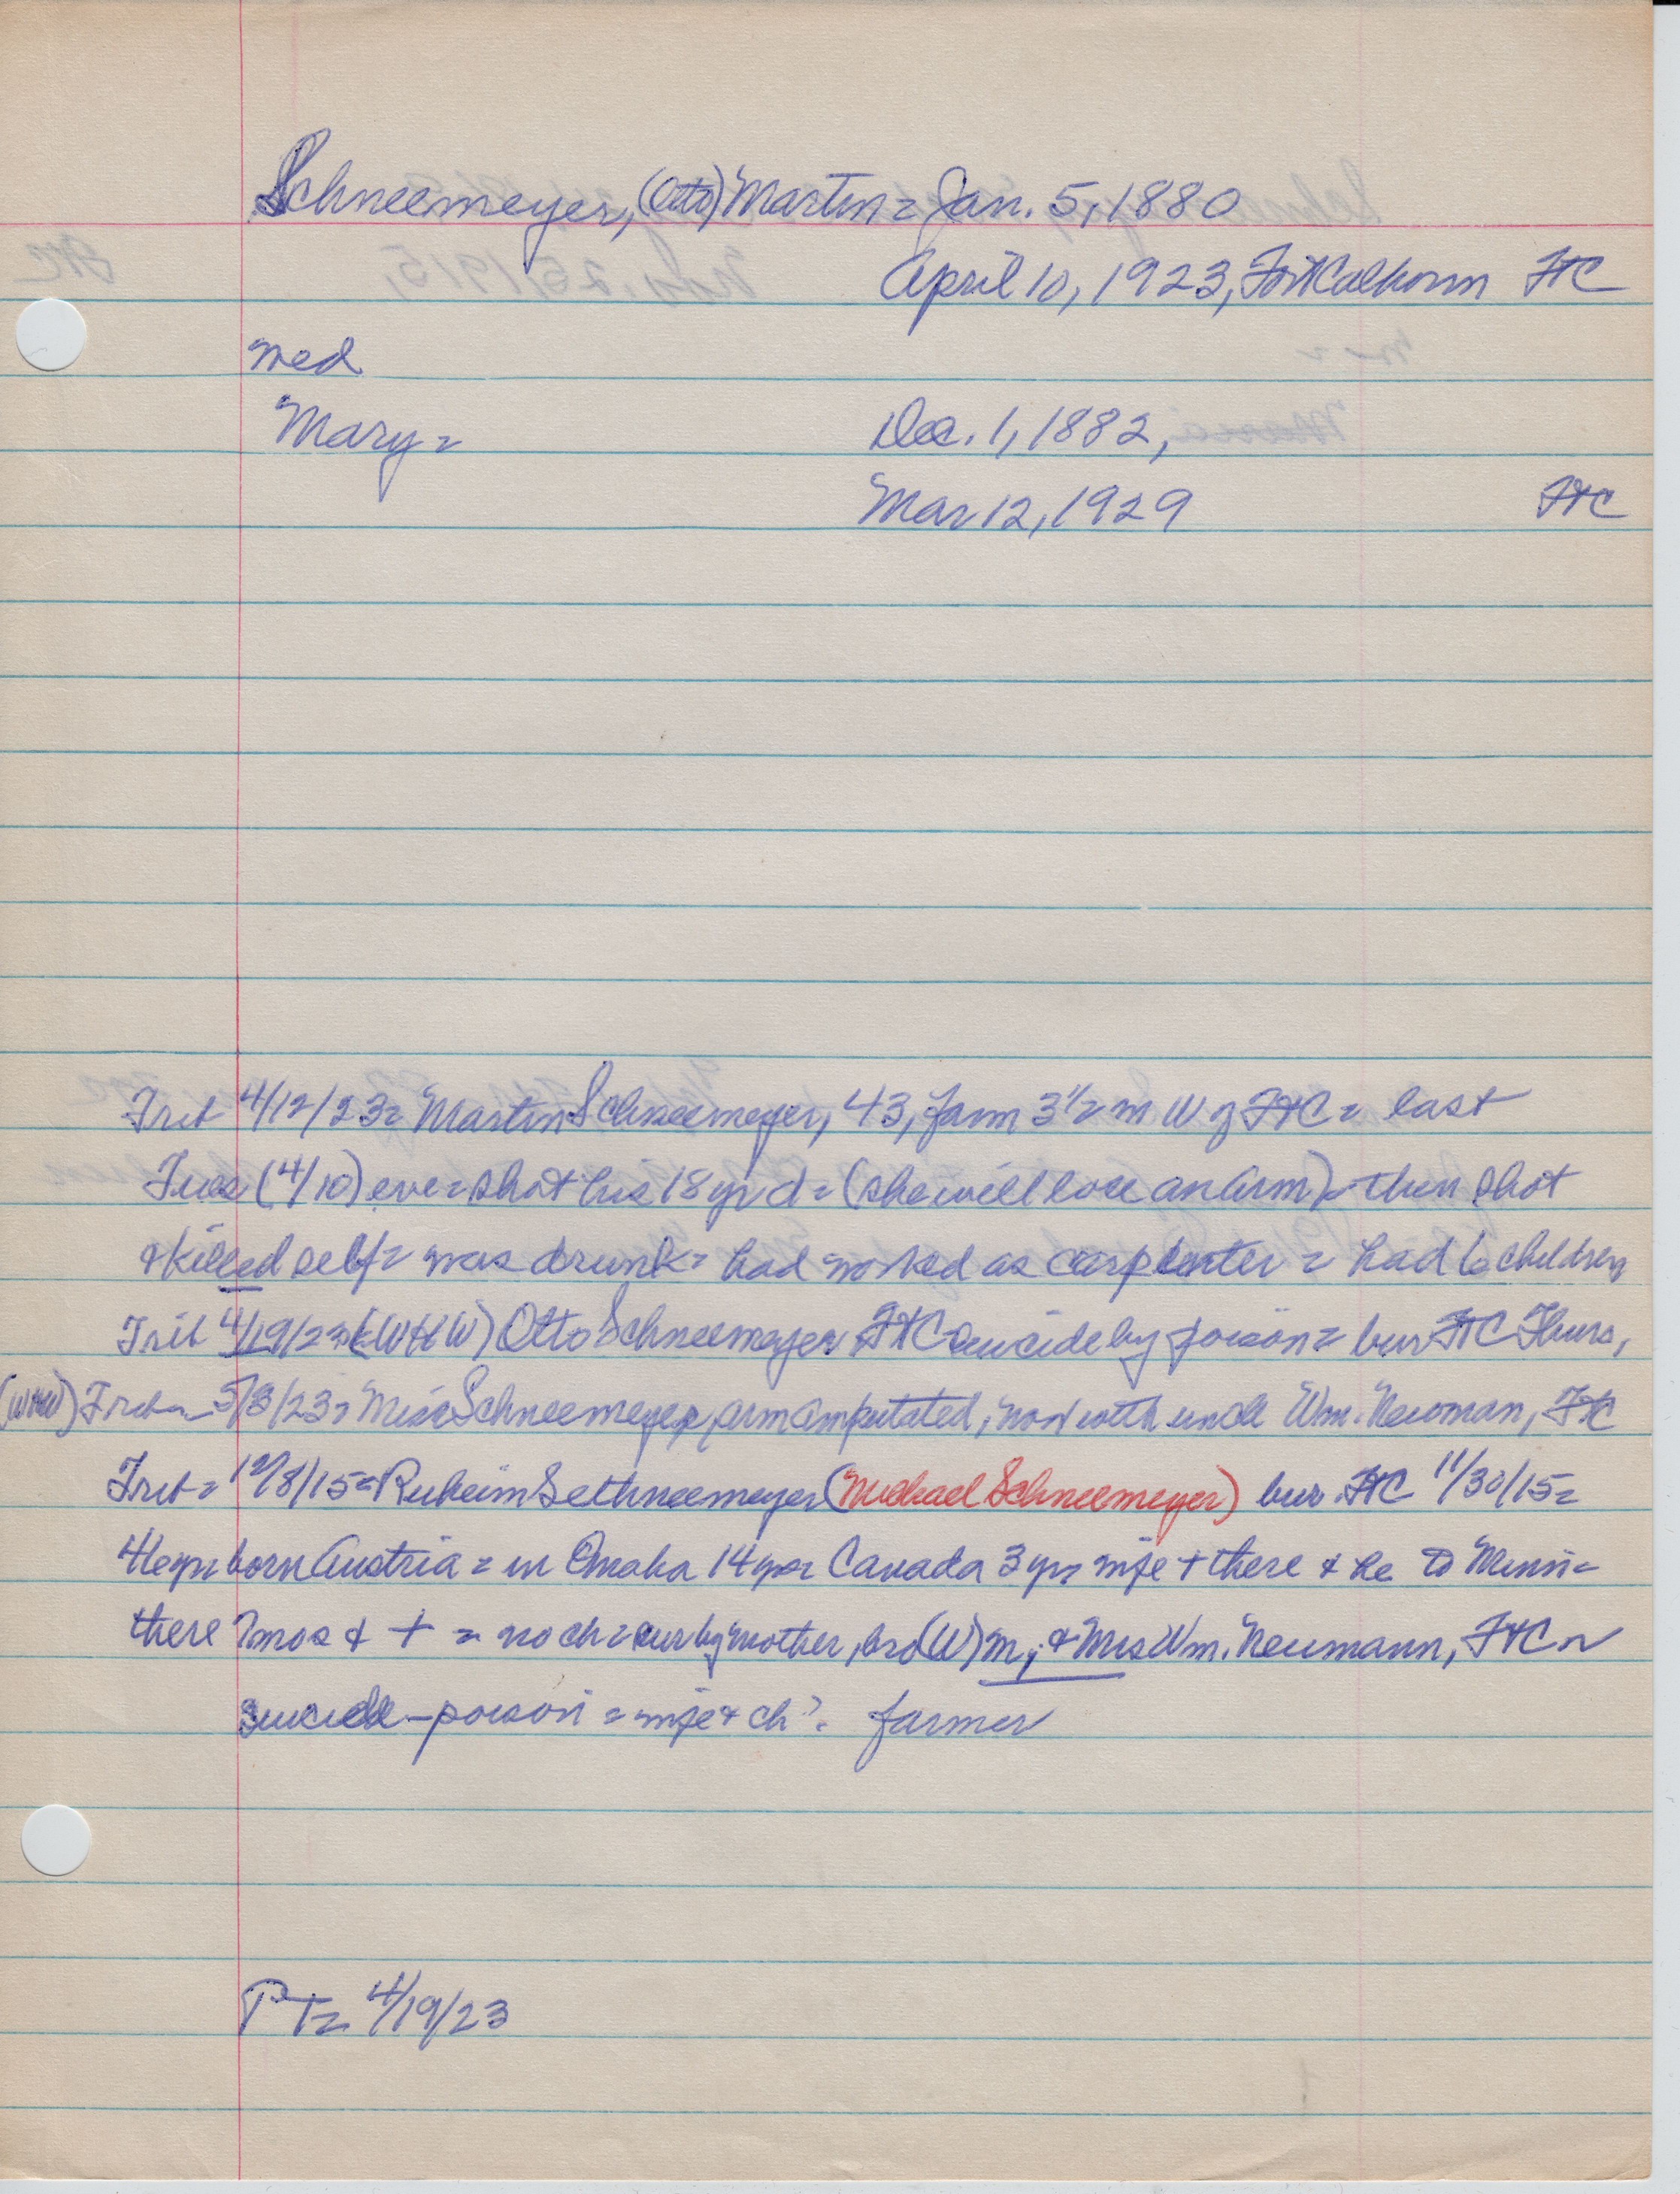 Schneemeyer, (Otto) Martin = Jan. 5, 1880
April 10, 1923, Fort Calhoun FtC
med
Mary =
Dec. 1, 1882,
Mar 12, 1929 FtC
Trib 4/12/23 = Martin Schneemeyer, 43, farm 3 1/2 m W of FtC = last
Tues (4/10) eve = shot his 18 yr d = (she will lose an arm) = then shot
& killed self = was drunk = had worked as carpenter = had 6 children
Trib 4/19/23 (WHW) Otto Schneemeyer FtC suicide by poison = bur FtC Thurs,
(WHW) Trib 5/3/23 = Miss Schneemeyer, arm amputated, now with uncle Wm. Newman, FtC
Trib = 12/8/15 = Ruheim Sethneemeyer (Michael Schneemeyer) bur. FtC 11/30/15 =
born Austria = in Omaha 14 yrs = Canada 3 yrs wife + there & he to Minn =
there 7 mos & + = no ch = sur by mother, bro (W) m, & Mrs Wm. Neumann, FtC ~
suicide - poison = wife & ch ?. farmer
PT = 4/19/23